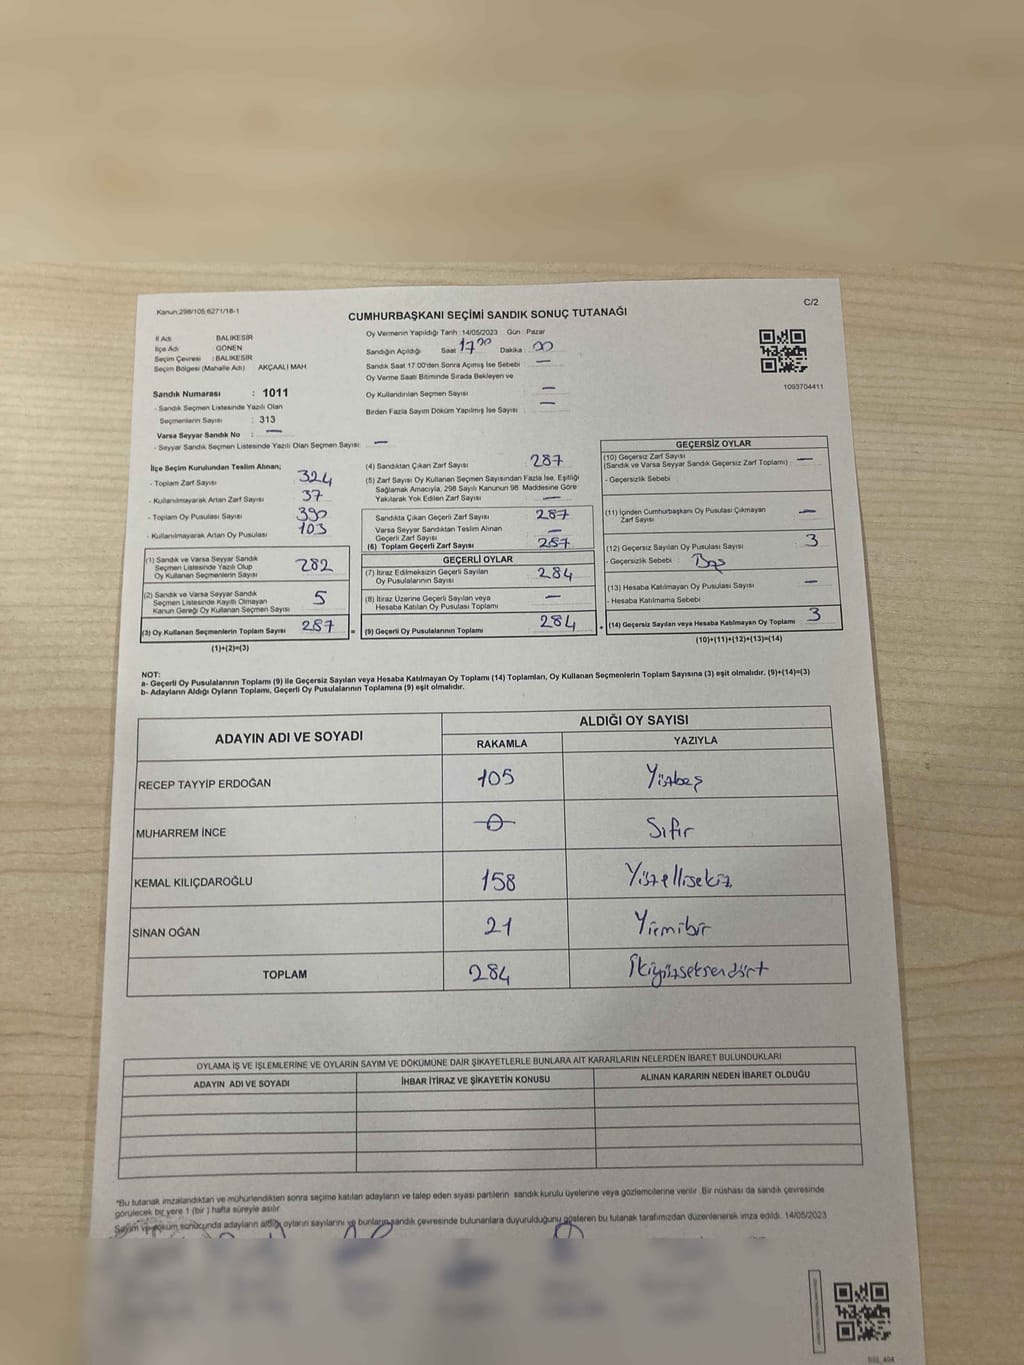 Kanun:298/105;6271/18-1
C/2
CUMHURBAŞKANI SEÇİMİ SANDIK SONUÇ TUTANAĞI
İl Adı BALIKESİR
İlçe Adı GÖNEN
Seçim Çevresi : BALIKESİR
Seçim Bölgesi (Mahalle Adı) AKÇAALİ MAH.
Sandık Numarası : 1011
- Sandık Seçmen Listesinde Yazılı Olan
Seçmenlerin Sayısı : 313
Varsa Seyyar Sandık No : —
- Seyyar Sandık Seçmen Listesinde Yazılı Olan Seçmen Sayısı: —
Oy Vermenin Yapıldığı Tarih :14/05/2023 Gün : Pazar
Sandığın Açıldığı Saat 17⁰⁰ Dakika : 00
Sandık Saat 17:00'den Sonra Açımış İse Sebebi : —
Oy Verme Saati Bitiminde Sırada Bekleyen ve
Oy Kullandırılan Seçmen Sayısı —
Birden Fazla Sayım Döküm Yapılmış İse Sayısı : —
1093704411
İlçe Seçim Kurulundan Teslim Alınan;
- Toplam Zarf Sayısı 324
- Kullanılmayarak Artan Zarf Sayısı 37
- Toplam Oy Pusulası Sayısı 390
- Kullanılmayarak Artan Oy Pusulası 103
(1) Sandık ve Varsa Seyyar Sandık
Seçmen Listesinde Yazılı Olup
Oy Kullanan Seçmenlerin Sayısı 282
(2) Sandık ve Varsa Seyyar Sandık
Seçmen Listesinde Kayıtlı Olmayan
Kanun Gereği Oy Kullanan Seçmen Sayısı 5
(3) Oy Kullanan Seçmenlerin Toplam Sayısı 287 =
(1)+(2)=(3)
(4) Sandıktan Çıkan Zarf Sayısı 287
(5) Zarf Sayısı Oy Kullanan Seçmen Sayısından Fazla İse, Eşitliği
Sağlamak Amacıyla, 298 Sayılı Kanunun 98. Maddesine Göre
Yakılarak Yok Edilen Zarf Sayısı —
Sandıkta Çıkan Geçerli Zarf Sayısı 287
Varsa Seyyar Sandıktan Teslim Alınan
Geçerli Zarf Sayısı —
(6) Toplam Geçerli Zarf Sayısı 287
GEÇERLİ OYLAR
(7) İtiraz Edilmeksizin Geçerli Sayılan
Oy Pusulalarının Sayısı 284
(8) İtiraz Üzerine Geçerli Sayılan veya
Hesaba Katılan Oy Pusulası Toplamı —
(9) Geçerli Oy Pusulalarının Toplamı 284 +
GEÇERSİZ OYLAR
(10) Geçersiz Zarf Sayısı
(Sandık ve Varsa Seyyar Sandık Geçersiz Zarf Toplamı) —
- Geçersizlik Sebebi
(11) İçinden Cumhurbaşkanı Oy Pusulası Çıkmayan
Zarf Sayısı —
(12) Geçersiz Sayılan Oy Pusulası Sayısı 3
- Geçersizlik Sebebi : Boş
(13) Hesaba Katılmayan Oy Pusulası Sayısı —
- Hesaba Katılmama Sebebi
(14) Geçersiz Sayılan veya Hesaba Katılmayan Oy Toplamı 3
(10)+(11)+(12)+(13)=(14)
NOT:
a- Geçerli Oy Pusulalarının Toplamı (9) ile Geçersiz Sayılan veya Hesaba Katılmayan Oy Toplamı (14) Toplamları, Oy Kullanan Seçmenlerin Toplam Sayısına (3) eşit olmalıdır. (9)+(14)=(3)
b- Adayların Aldığı Oyların Toplamı, Geçerli Oy Pusulalarının Toplamına (9) eşit olmalıdır.
ADAYIN ADI VE SOYADI ALDIĞI OY SAYISI
RAKAMLA YAZIYLA
RECEP TAYYİP ERDOĞAN 105 Yüzbeş
MUHARREM İNCE 0 Sıfır
KEMAL KILIÇDAROĞLU 158 Yüzellisekiz
SİNAN OĞAN 21 Yirmibir
TOPLAM 284 İkiyüzseksendört
OYLAMA İŞ VE İŞLEMLERİNE VE OYLARIN SAYIM VE DÖKÜMÜNE DAİR ŞİKAYETLERLE BUNLARA AİT KARARLARIN NELERDEN İBARET BULUNDUKLARI
ADAYIN ADI VE SOYADI İHBAR İTİRAZ VE ŞİKAYETİN KONUSU ALINAN KARARIN NEDEN İBARET OLDUĞU
*Bu tutanak imzalandıktan ve mühürlendikten sonra seçime katılan adayların ve talep eden siyasi partilerin sandık kurulu üyelerine veya gözlemcilerine verilir .Bir nüshası da sandık çevresinde
görülecek bir yere 1 (bir ) hafta süreyle asılır.
Sayım ve döküm sonucunda adayların aldığı oyların sayılarını ve bunların sandık çevresinde bulunanlara duyurulduğunu gösteren bu tutanak tarafımızdan düzenlenerek imza edildi. 14/05/2023